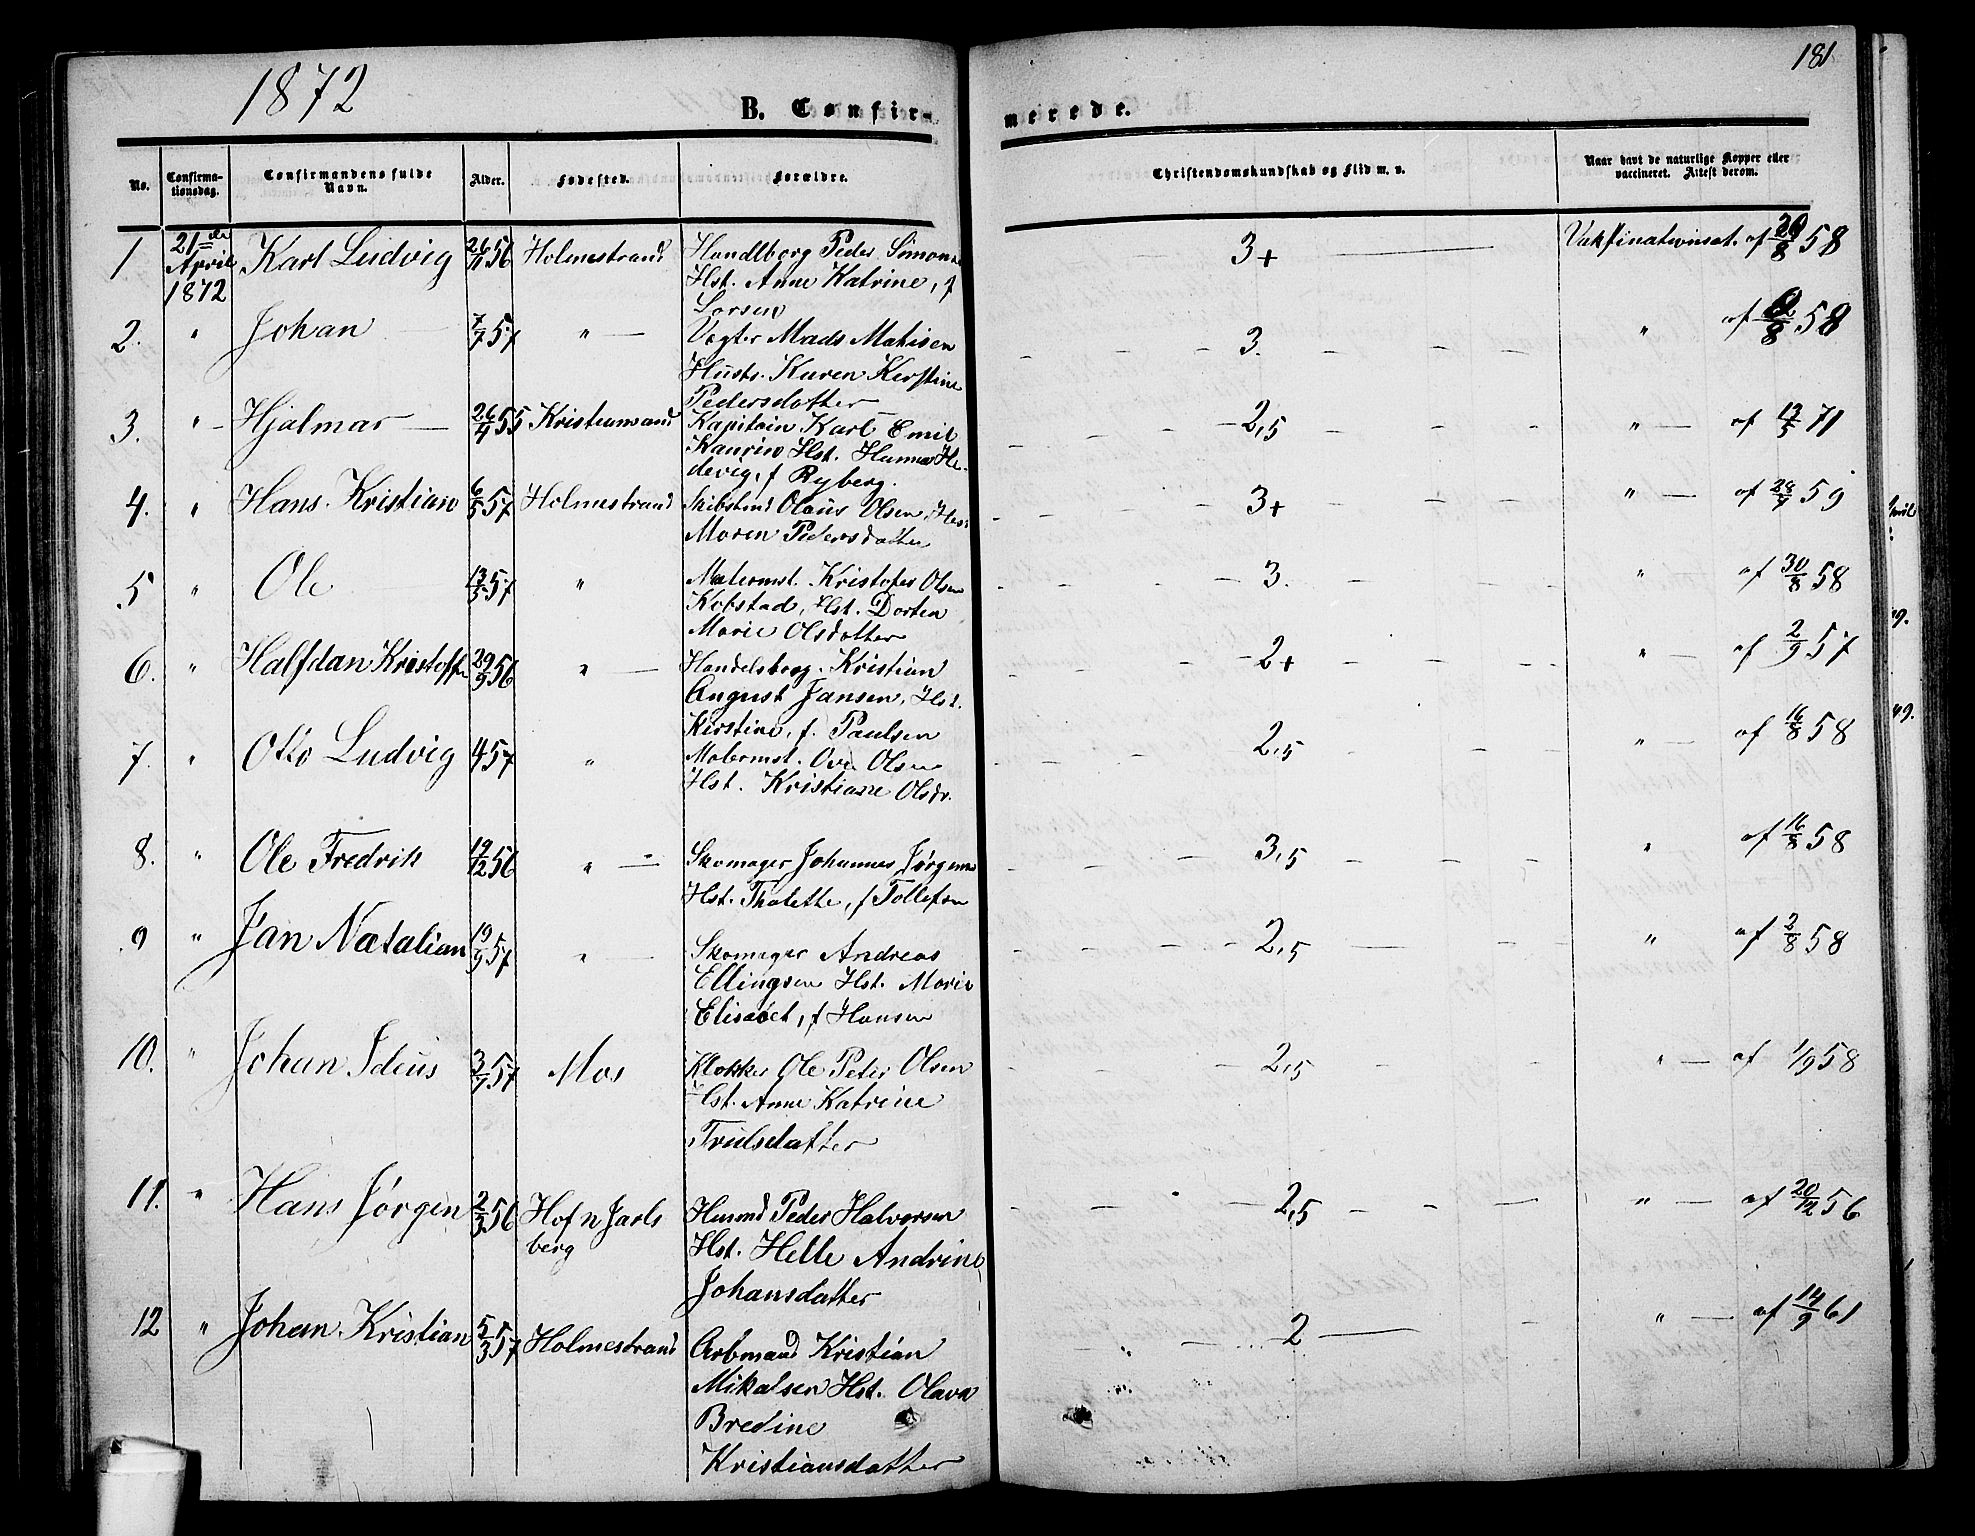 1872
181
B. Confirmerede.
No. Confirmationsdag. Confirmandens fulde Navn. Alder. Fødested. Forældre. Christendomskundskab og Flid m. v. Naar havt de naturlige Kopper eller vaccineret. Attest derom.
1 21de April 1872 Karl Ludvig 26/11 56 Holmestrand Handlborg Peder Simons
Hst. Anne Katrine, f
Larsen 3+ af 58
2. " Johan 7/7 57 " Vogter Mads Matisen
Husts. Karen Kerstine
Pedersdatter 3. " af 58
3. " Hjalmar 26/4 55 Kristiansand Kapitain Karl Emil
Kaurin Hst. Hanna He-
devig, f Ryberg. 2,5 " af 71
4. " Hans Kristian 6/5 57 Holmestrand Olaus Olsen,
Maren Pedersdatter 3+ " af 28/7 59
5 " Ole 13/5 57 " Kristofer Olsen
Kobstad, Hst. Dorten
Marie Olsdatter 3. " af 30/8 58
6. " Halfdan Kristoffer 29/9 56 " Handelsborg. Kristian
August Jansen, Hst.
Kerstine, f. Paulsen 2+ " af 2/9 57
7. " Otto Ludvig 4 57 " Ove Olsen
Hst. Kristiane Olsdr. 2,5 " af 16/8 58
8. " Ole Fredrik 19/12 56 " Skomager Johannes Jørgens
Hst. Thalette, f Tollefsen 3,5 " af 16/8 58
9 " Jan Natalian 19/9 57 " Skomager Andreas
Ellingsen Hst. Marie
Elisabet, f Hansen 2,5 " af 2/8 58
10. " Johan 3/7 57 Mos Klokker Ole Peter Olsen
Hst. Anne Katrine
Trulsdatter 2,5 " af 1/9 58
11. " Hans Jørgen 2/3 56 Hof n Jarls
berg Husmd Peder Halvorsen
Hst. Helle Andrine
Johansdatter 2,5 " af 20/12 56
12 " Johan Kristian 5/3 57 Holmestrand Arbmand Kristian
Mikalsen Hst. Olava
Bredine
Kristiansdatter 2 " af 14/9 61